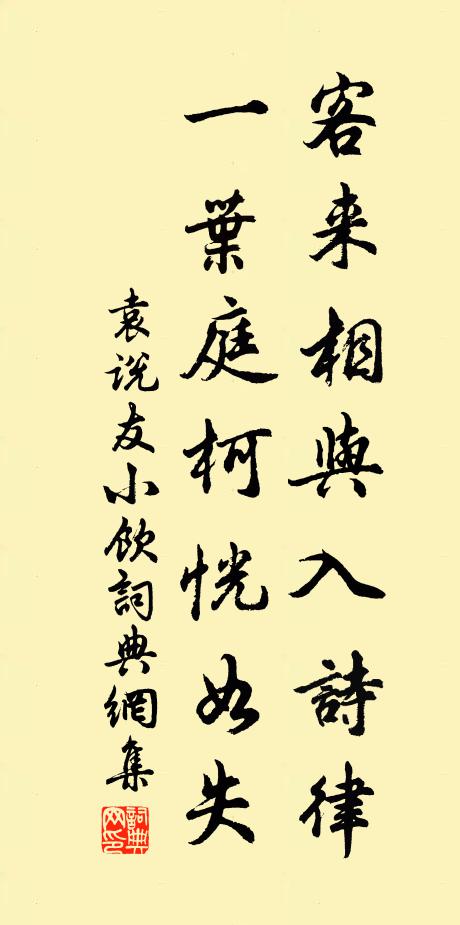 客来相與入詩律
一葉庭柯恍如失
袁说友小飲詞典網集
詞典网印